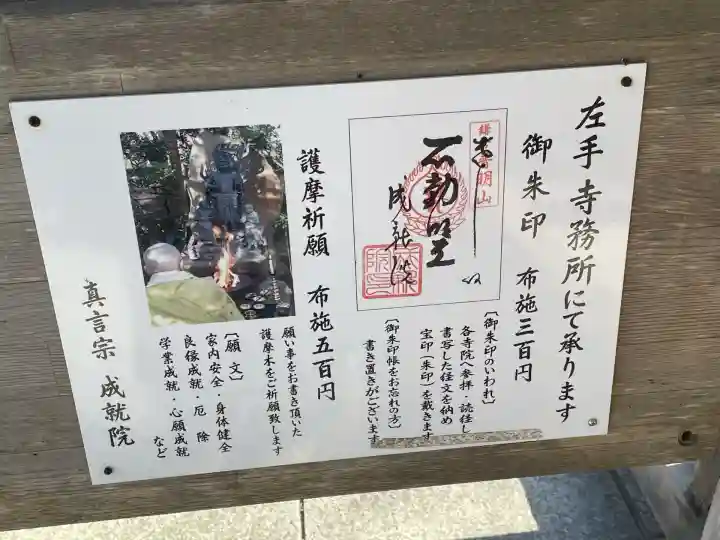 左手寺務所にて承ります
御朱印 布施三百円
〔御朱印のいわれ〕
各寺院へ参拝・読経し
書写した経文を納め
宝印(朱印)を戴きます
〔御朱印帳をお忘れの方〕
書き置きがございます
明山
不動明王
成就院
護摩祈願 布施五百円
願い事をお書き頂いた
護摩木をご祈願致します
〔願文〕
家内安全・身体健全
良縁成就・厄除
学業成就・心願成就
など
真言宗 成就院